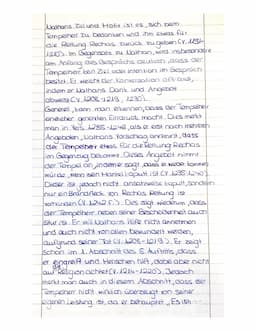 Nathans Ziel und Motiv ist es, sich beim
Tempelherr zu bedanken und ihm etwas für
die Rettung Rechas zurück zu geben (V. 1231-
1235). Im Gegensatz zu Nathan, wird insbesondere
am Anfang des Gesprächs deutlich, dass der
Tempelherr kein Ziel oder Intention im Gespräch
besitzt. Er weicht der Konversation eher aus,
indem er Nathans Dank und Angebot
abweist (V. 1208-1213, 1230).
Generell kann man erkennen, dass der Tempelherr
einen eher genervten Eindruck macht. Dies merkt
man in Vers, als er erst nach mehreren
Angeboten, Nathans Vorschlag annimmt, dass
der Tempelherr etwas für die Rettung Rechas
im Gegenzug bekommt. Dieses Angebot nimmt
der Tempel an, indem er sagt, dass er weder kommen
würde, wenn sein Mantel kaputt ist
Dieser ist jedoch nicht ansatzweise kaputt, sondern
nur ein Brandfleck von Rechas Rettung ist
vorhanden. Dies zeigt wiederum, dass
der Tempelherr neben seiner Bescheidenheit auch
stur ist. Er will Nathans Hilfe nicht annehmen
und auch nicht von allen bewundert werden,
aufgrund seiner Tat (V. 1208-1213). Er zeigt
schon im 1. Abschnitt des Auftritts, dass
er eingreift und Menschen hilft, dabei aber nicht
auf Religion achtet (V. 1214-1220). Jedoch
merkt man auch in diesem Abschnitt, dass der
Tempelherr nicht wirklich überzeugt von seiner
eigenen Leistung ist, da er behauptet „Es ist